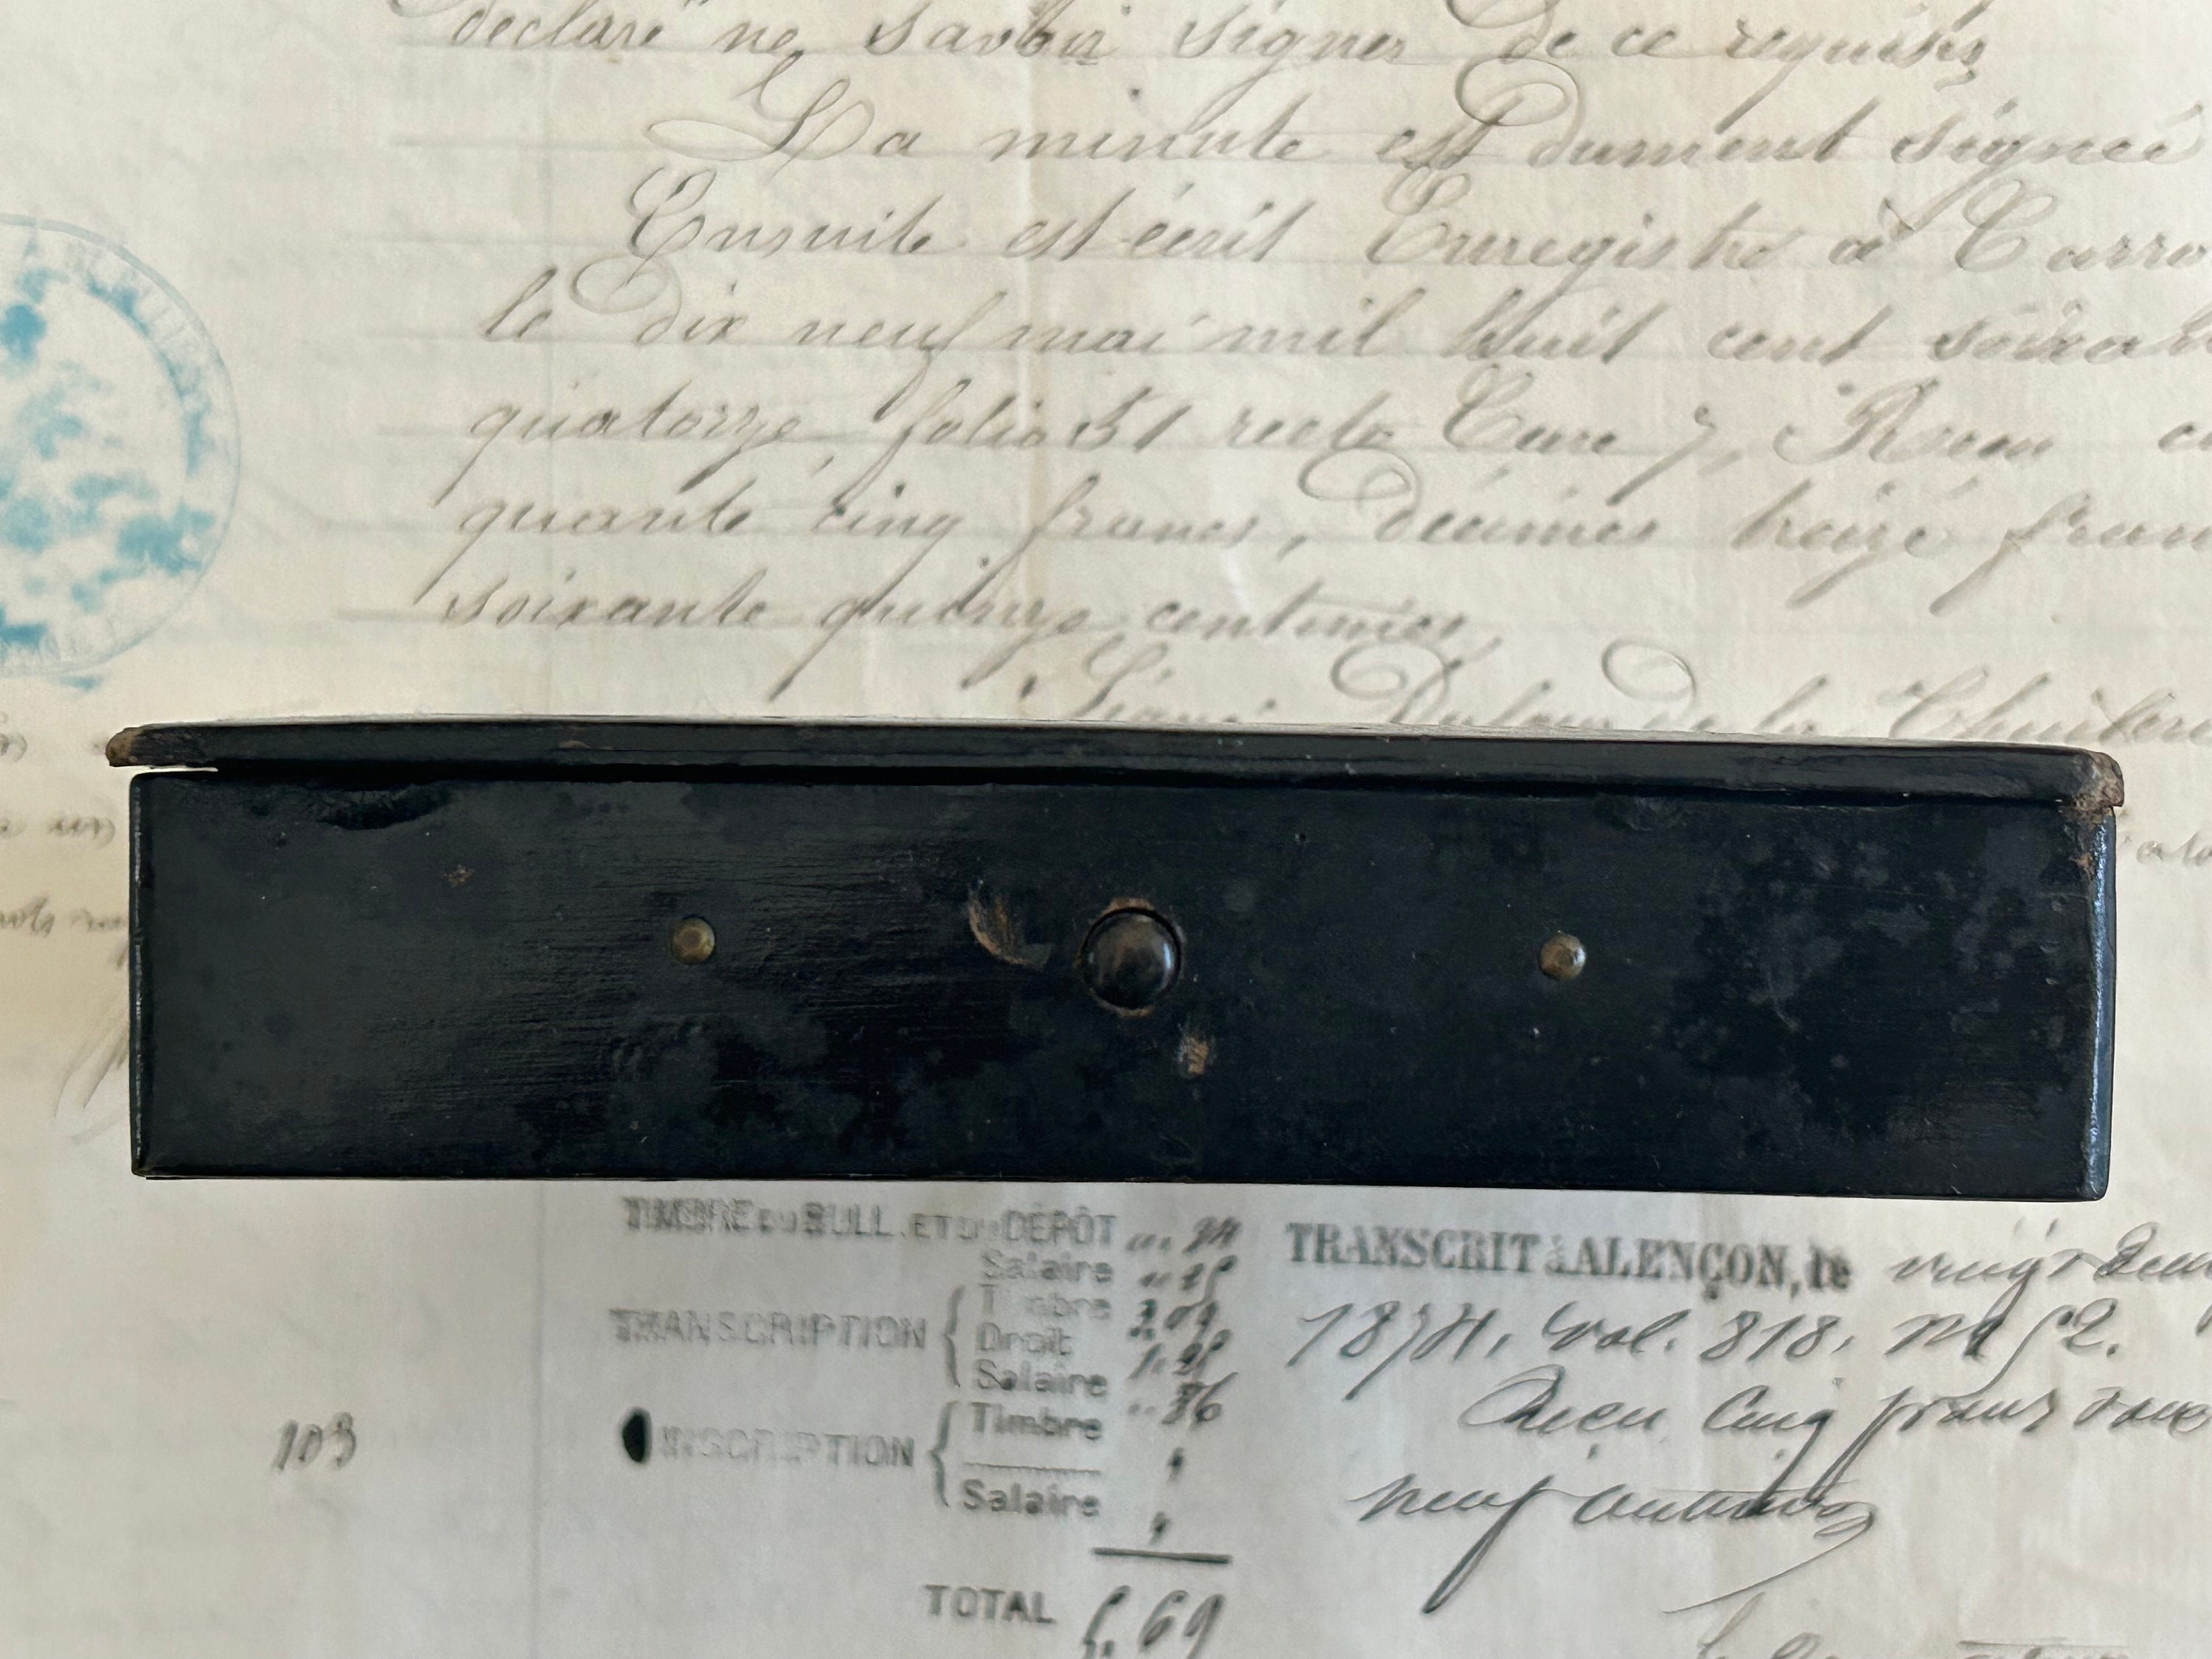 declaré ne savoir signer de ce requis
La minute est dument signée
Ensuite est écrit Enregistré à Carro
le dix neuf mai mil huit cent soixan
quatorze, folio 51 recto Case 7, Reçu ci
quante cinq francs, décimes treize fran
soixante quinze centimes
Signé
TIMBRE DU BULL. ET DU DÉPÔT
Salaire " 25
TRANSCRIPTION { Timbre
Droit
Salaire
INSCRIPTION { Timbre
Salaire
TOTAL 5.69
TRANSCRIT à ALENÇON, le vingt deux
1874, Vol. 818, No 52.
Reçu Cinq francs soixe
neuf centimes
103